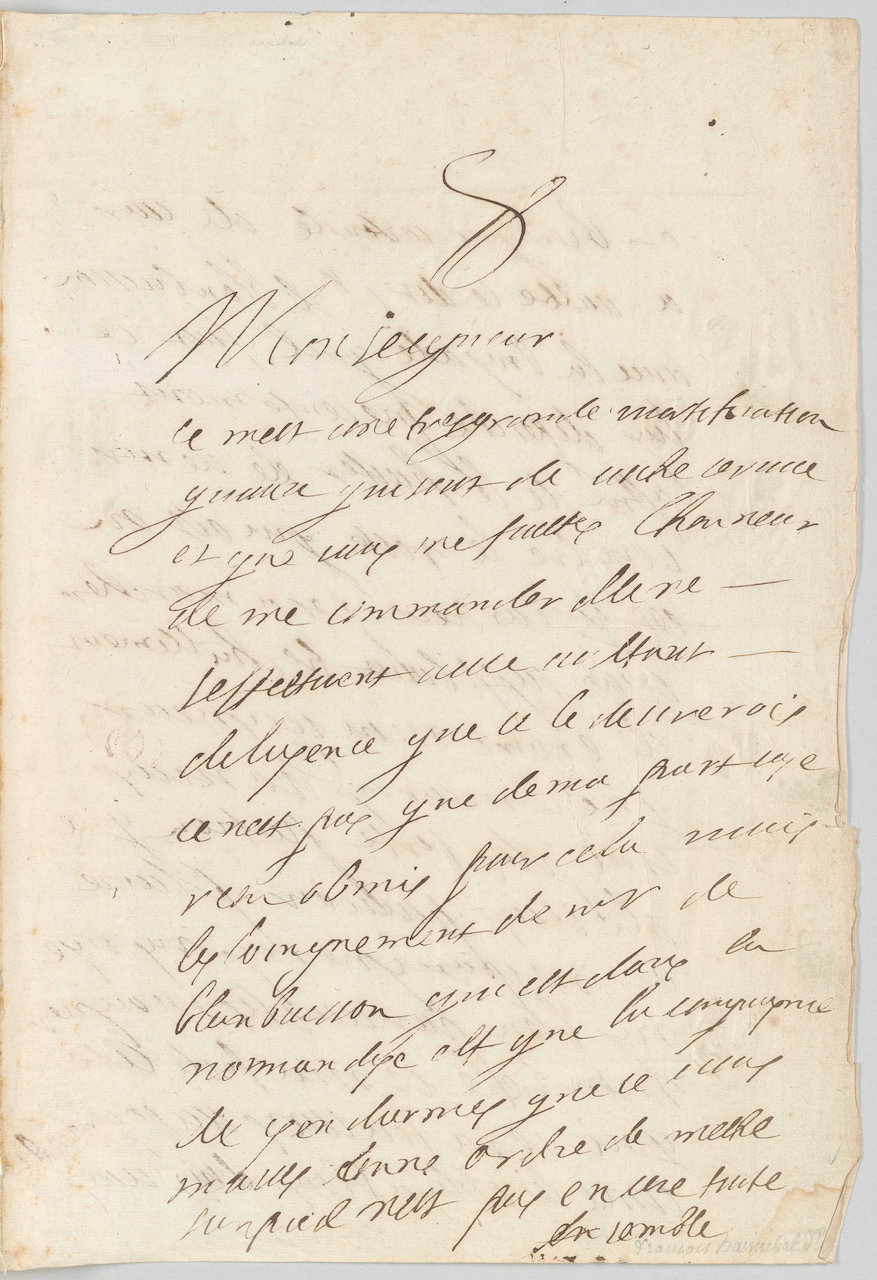 Monseigneur
ce mest une tresgrande mortification
quaux qui sont de vostre service
et que vous me faittes lhonneur
de me commander elle ne
seffectuent avec autant
deligence que ie le desirerois
ce nest pas que de ma part iaye
rien obmis pour cela mais
lesloingnement de mr de
blanbuisson qui est dans la
normandye est que la compagnie
de gendarmes que ie vous
mavés donné ordre de mettre
sur pied nest pas encore toute
ensemble